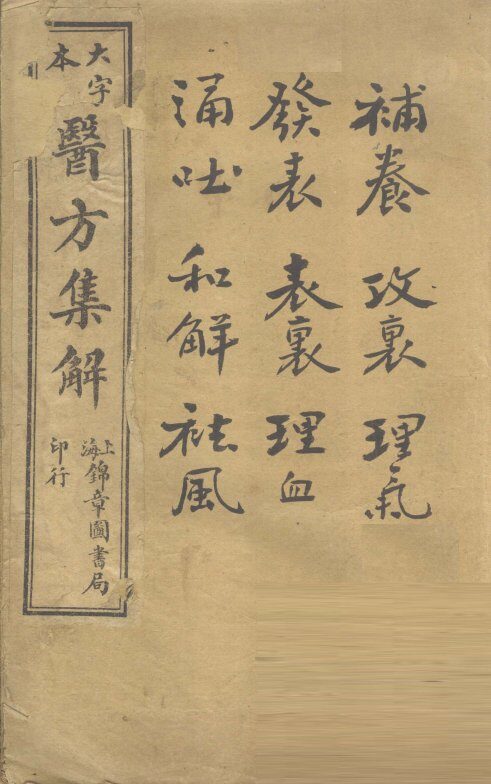 補養 攻裏 理氣
發表 表裏 理血
涌吐 和解 祛風
大字本
醫方集解
上海錦章圖書局
印行